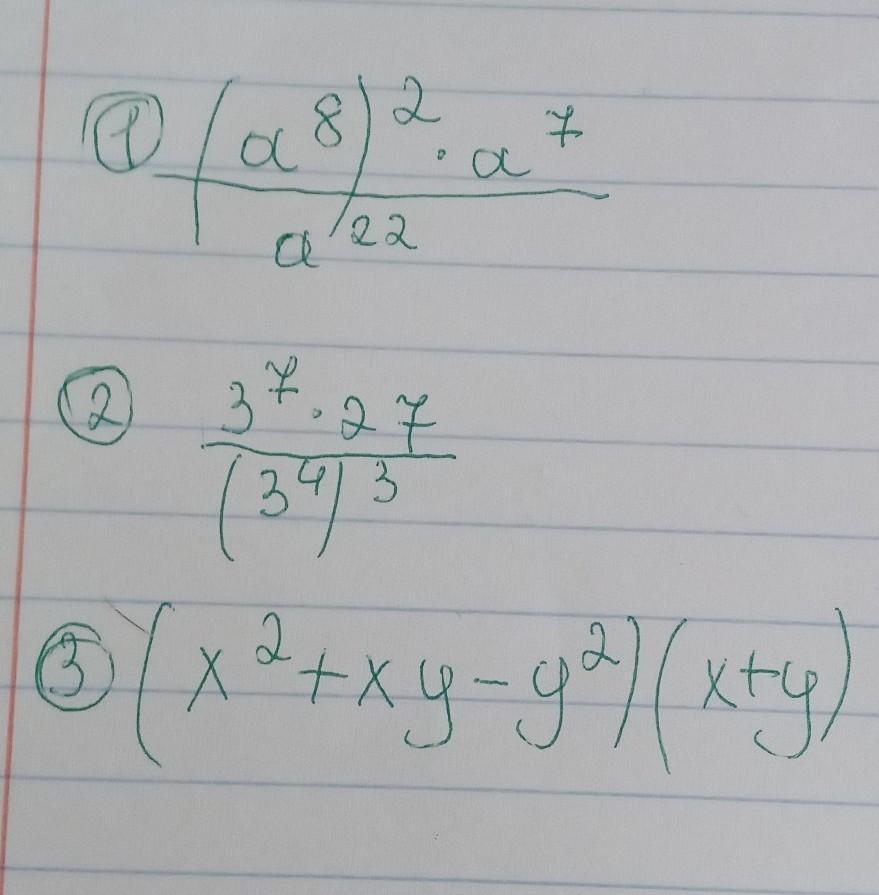 ① (a⁸)² · a⁷
a²²
② 3⁷ · 27
(3⁴)³
③ (x² + xy - y²)(x+y)